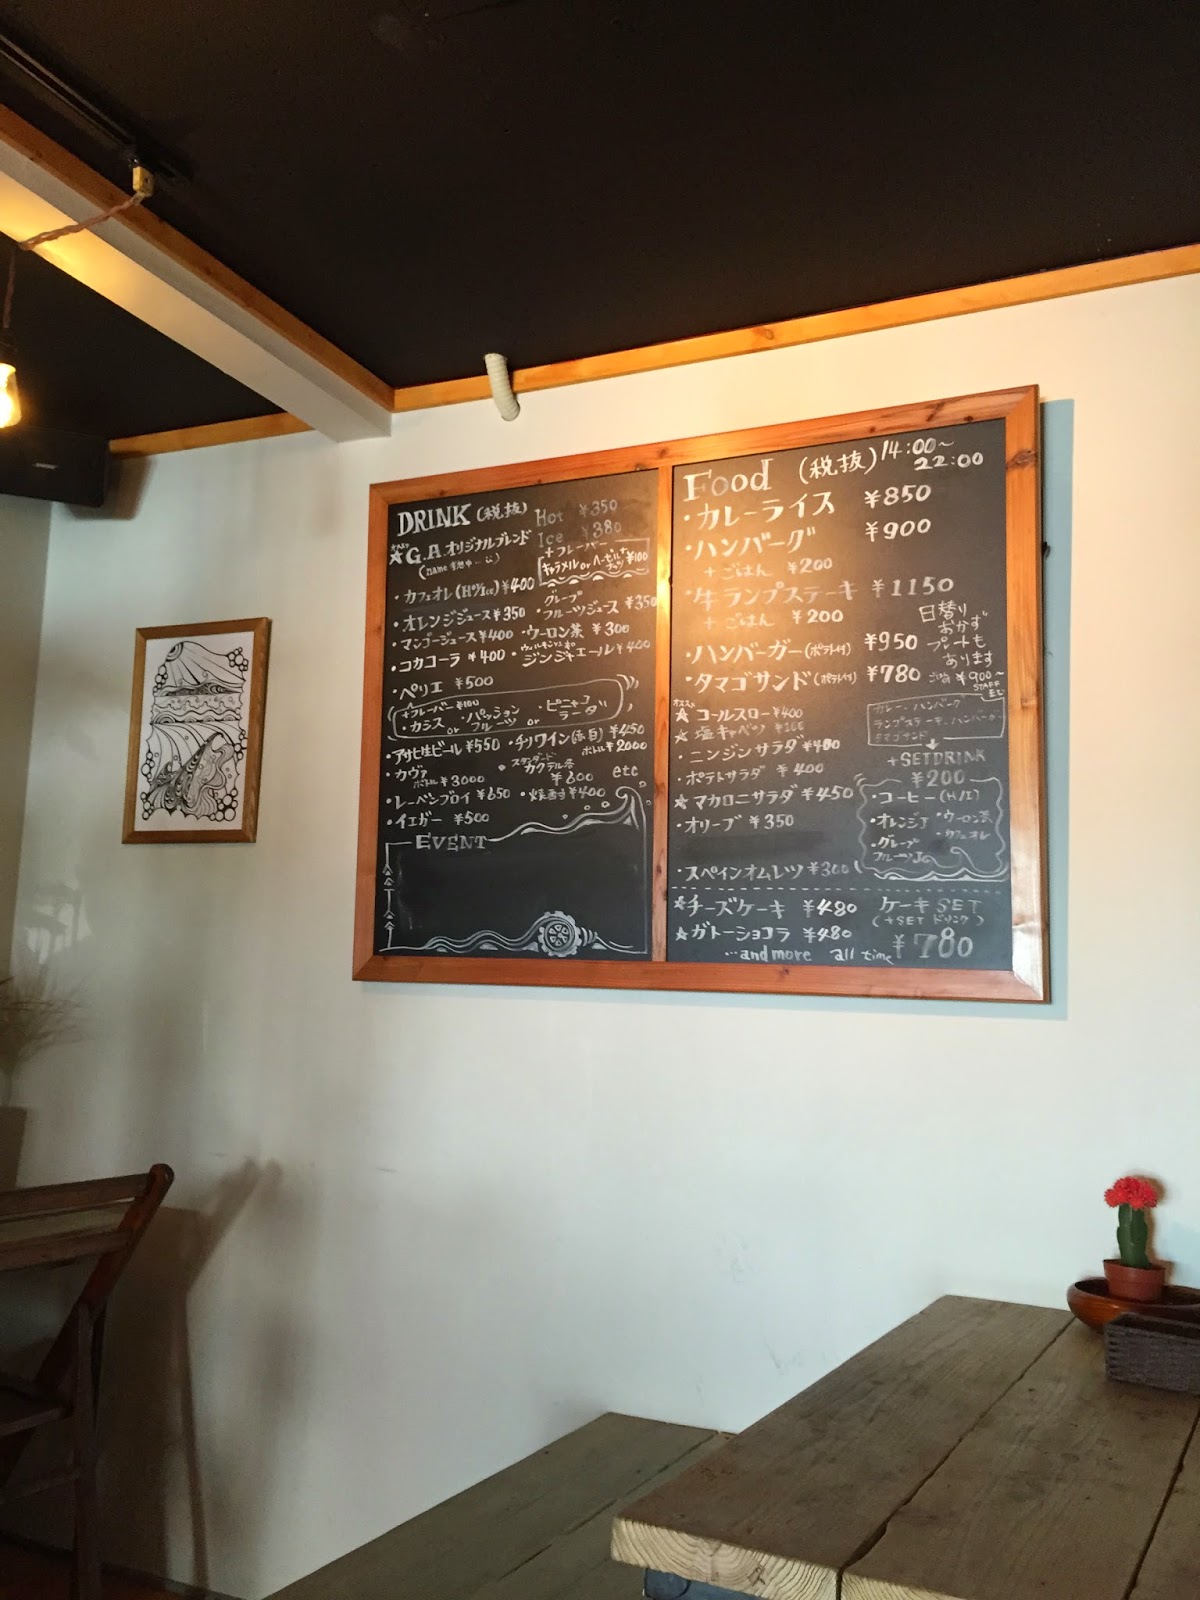 DRINK (税抜) Hot ¥350
Ice ¥380
オススメ
☆G.A オリジナルブレンド
+フレーバー
キャラメル or ヘーゼルナッツ +¥100
・カフェオレ(Hot/Ice) ¥400
・オレンジジュース ¥350
・グレープフルーツジュース ¥350
・マンゴージュース ¥400
・ウーロン茶 ¥300
・コカコーラ ¥400
ジンジャエール ¥400
・ペリエ ¥500
+フレーバー ¥100
・カシス ・パッションフルーツ or ・ピニャコラーダ
・アサヒ生ビール ¥550
・チリワイン(赤,白) ¥450
ボトル ¥2000
・カヴァ
ボトル ¥3000
・スタンダードカクテル各 ¥600 etc
・レーベンブロイ ¥650
・焼酎 ¥400
・イエガー ¥500
EVENT
Food (税抜) 14:00~
22:00
・カレーライス ¥850
・ハンバーグ ¥900
+ごはん ¥200
・牛ランプステーキ ¥1150
+ごはん ¥200
・ハンバーガー(ポテト付) ¥950
・タマゴサンド(ポテト付) ¥780
日替り
おかず
プレートも
あります
¥900~
STAFF
まで
オススメ
☆コールスロー ¥400
☆塩キャベツ
・ニンジンサラダ ¥400
・ポテトサラダ ¥400
☆マカロニサラダ ¥450
・オリーブ ¥350
・スペインオムレツ ¥300
カレー、ハンバーグ
ランプステーキ、ハンバーガー
タマゴサンド
+SETDRINK
¥200
・コーヒー(H/I)
・オレンジJ ・ウーロン茶
・カフェオレ
・グレープ
フルーツJ
☆チーズケーキ ¥480
☆ガトーショコラ ¥480
ケーキSET
(+SET ドリンク)
¥780
…and more all time